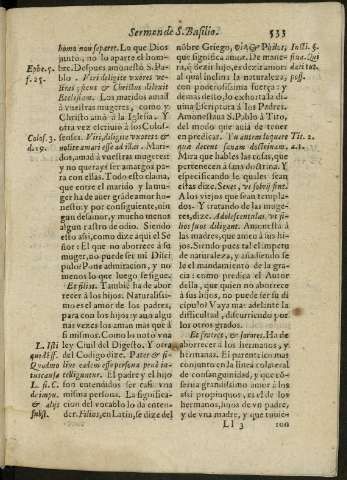 Sermon de S. Basilio. 533
homo non separet. Lo que Dios
juntò, no lo aparte el hom-
bre. Despues amonestò S. Pa-
blo. Viri diligite vxores ve-
stras sicut & Christus dilexit
Ecclesiam. Los maridos amad
à vuestras mugeres, como y
Christo amò a la Iglesia. Y
otra vez escriuio à los Colof-
senses. Viri, diligite vxores &
nolite amari esse ad illas. Mari-
dos, amad a vuestras mugeres
y no querays ser amargos pa-
ra con ellas. Todo esto clama,
que entre el marido y la mu-
ger ha de auer grãde amor ho-
nesto; y por consiguiente, nin
gun desamor, y mucho menos
algun rastro de odio. Siendo
esto assi, como dize aqui el Se
ñor: El que no aborrece à su
muger, no puede ser mi Disci
pido? Pone admiracion, y no
menos lo que luego se sigue.
Et filios. Tambiẽ ha de abor
recer à los hijos. Naturalissi-
mo es el amor de los padres,
para con los hijos: y aun algu
nas vezes los aman mas que à
si mismos. Como lo notò vna
ley Ciuil del Digesto. Y otra
del Codigo dize. Pater & fi-
lius eadem esse persona penè in-
telliguntur. El padre y el hijo
son entendidos ser casi vna
misma persona. La significa-
cion del vocablo lo da enten-
der. Filios, en Latin, se dize del
Ephe. 5.
f. 25.
Colos. 3.
d. 19.
L. Isti
quidẽ ff.
Quod me
tus causa
L. fi. C.
de impu.
& alijs
subst.
nõbre Griego, & Philos;
que significa amor. De mane-
ra, q̃ dezir hijo, es dezir amor:
al qual inclina la naturaleza,
con poderosissima fuerça: y
demas desto, lo exhorta la di-
uina Escriptura à los Padres.
Amonestaua S. Pablo à Tito,
del modo que auia de tener
en predicar. Tu autem loquere
quæ decent sanam doctrinam.
Mira que hables las cosas, que
pertenecen à sana doctrina. Y
especificando le quales sean
estas dize. Senes, vt sobrij sint.
A los viejos que sean templa-
dos. Y tratando de las muge-
res, dize. Adolescentulas, vt fi-
lios suos diligant. Amonesta à
las madres, que amen à sus hi-
jos. Siendo pues tal el impetu
de naturaleza, y añadiendo se
le el mandamiento de la gra-
cia: como predica el Autor
della, que quien no aborrece
à sus hijos, no puede ser su di
cipulo? Vaya mas adelante la
difficultad, discurriendo por
los otros grados.
Et fratres, & sorores. Ha de
aborrecer à los hermanos, y
hermanas. El parentesco mas
conjunto en la linea colateral
de consanguinidad, y que cõ
forme grandissimo amor à los
assi propinquos, es el de los
hermanos, hijos de vn padre,
y de vna madre, y que tuuie-
Insti. §.
Tit. 2.
a. 1.
Ll 3 ron